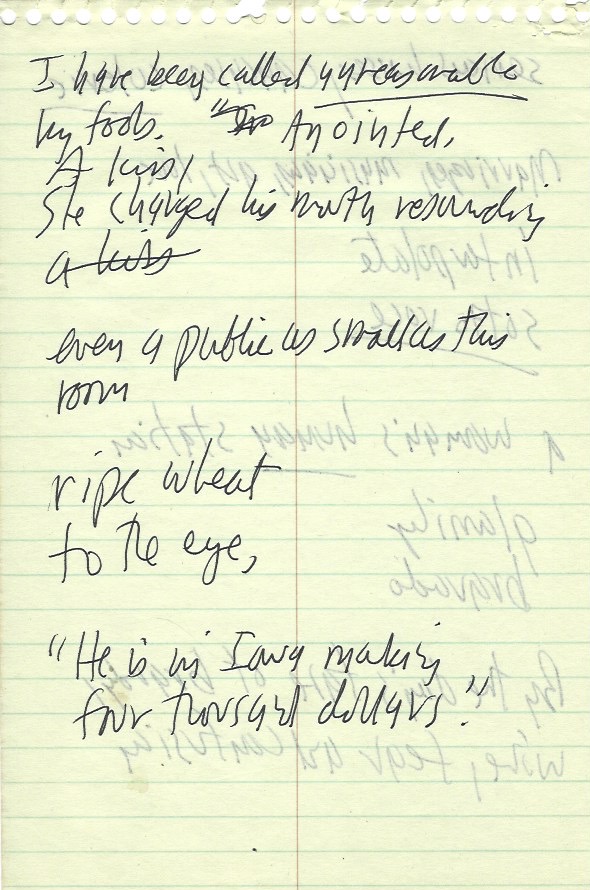 I have been called unreasonable
by fools. Anointed,
A kiss,
She changed his mouth resounding
a kiss
even a public as small as this
room
ripe wheat
to the eye,
"He is in Iowa making
four thousand dollars."